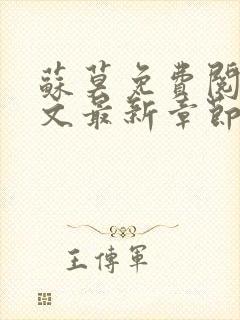 蘇莫免費閱
文最新章節
王傳軍